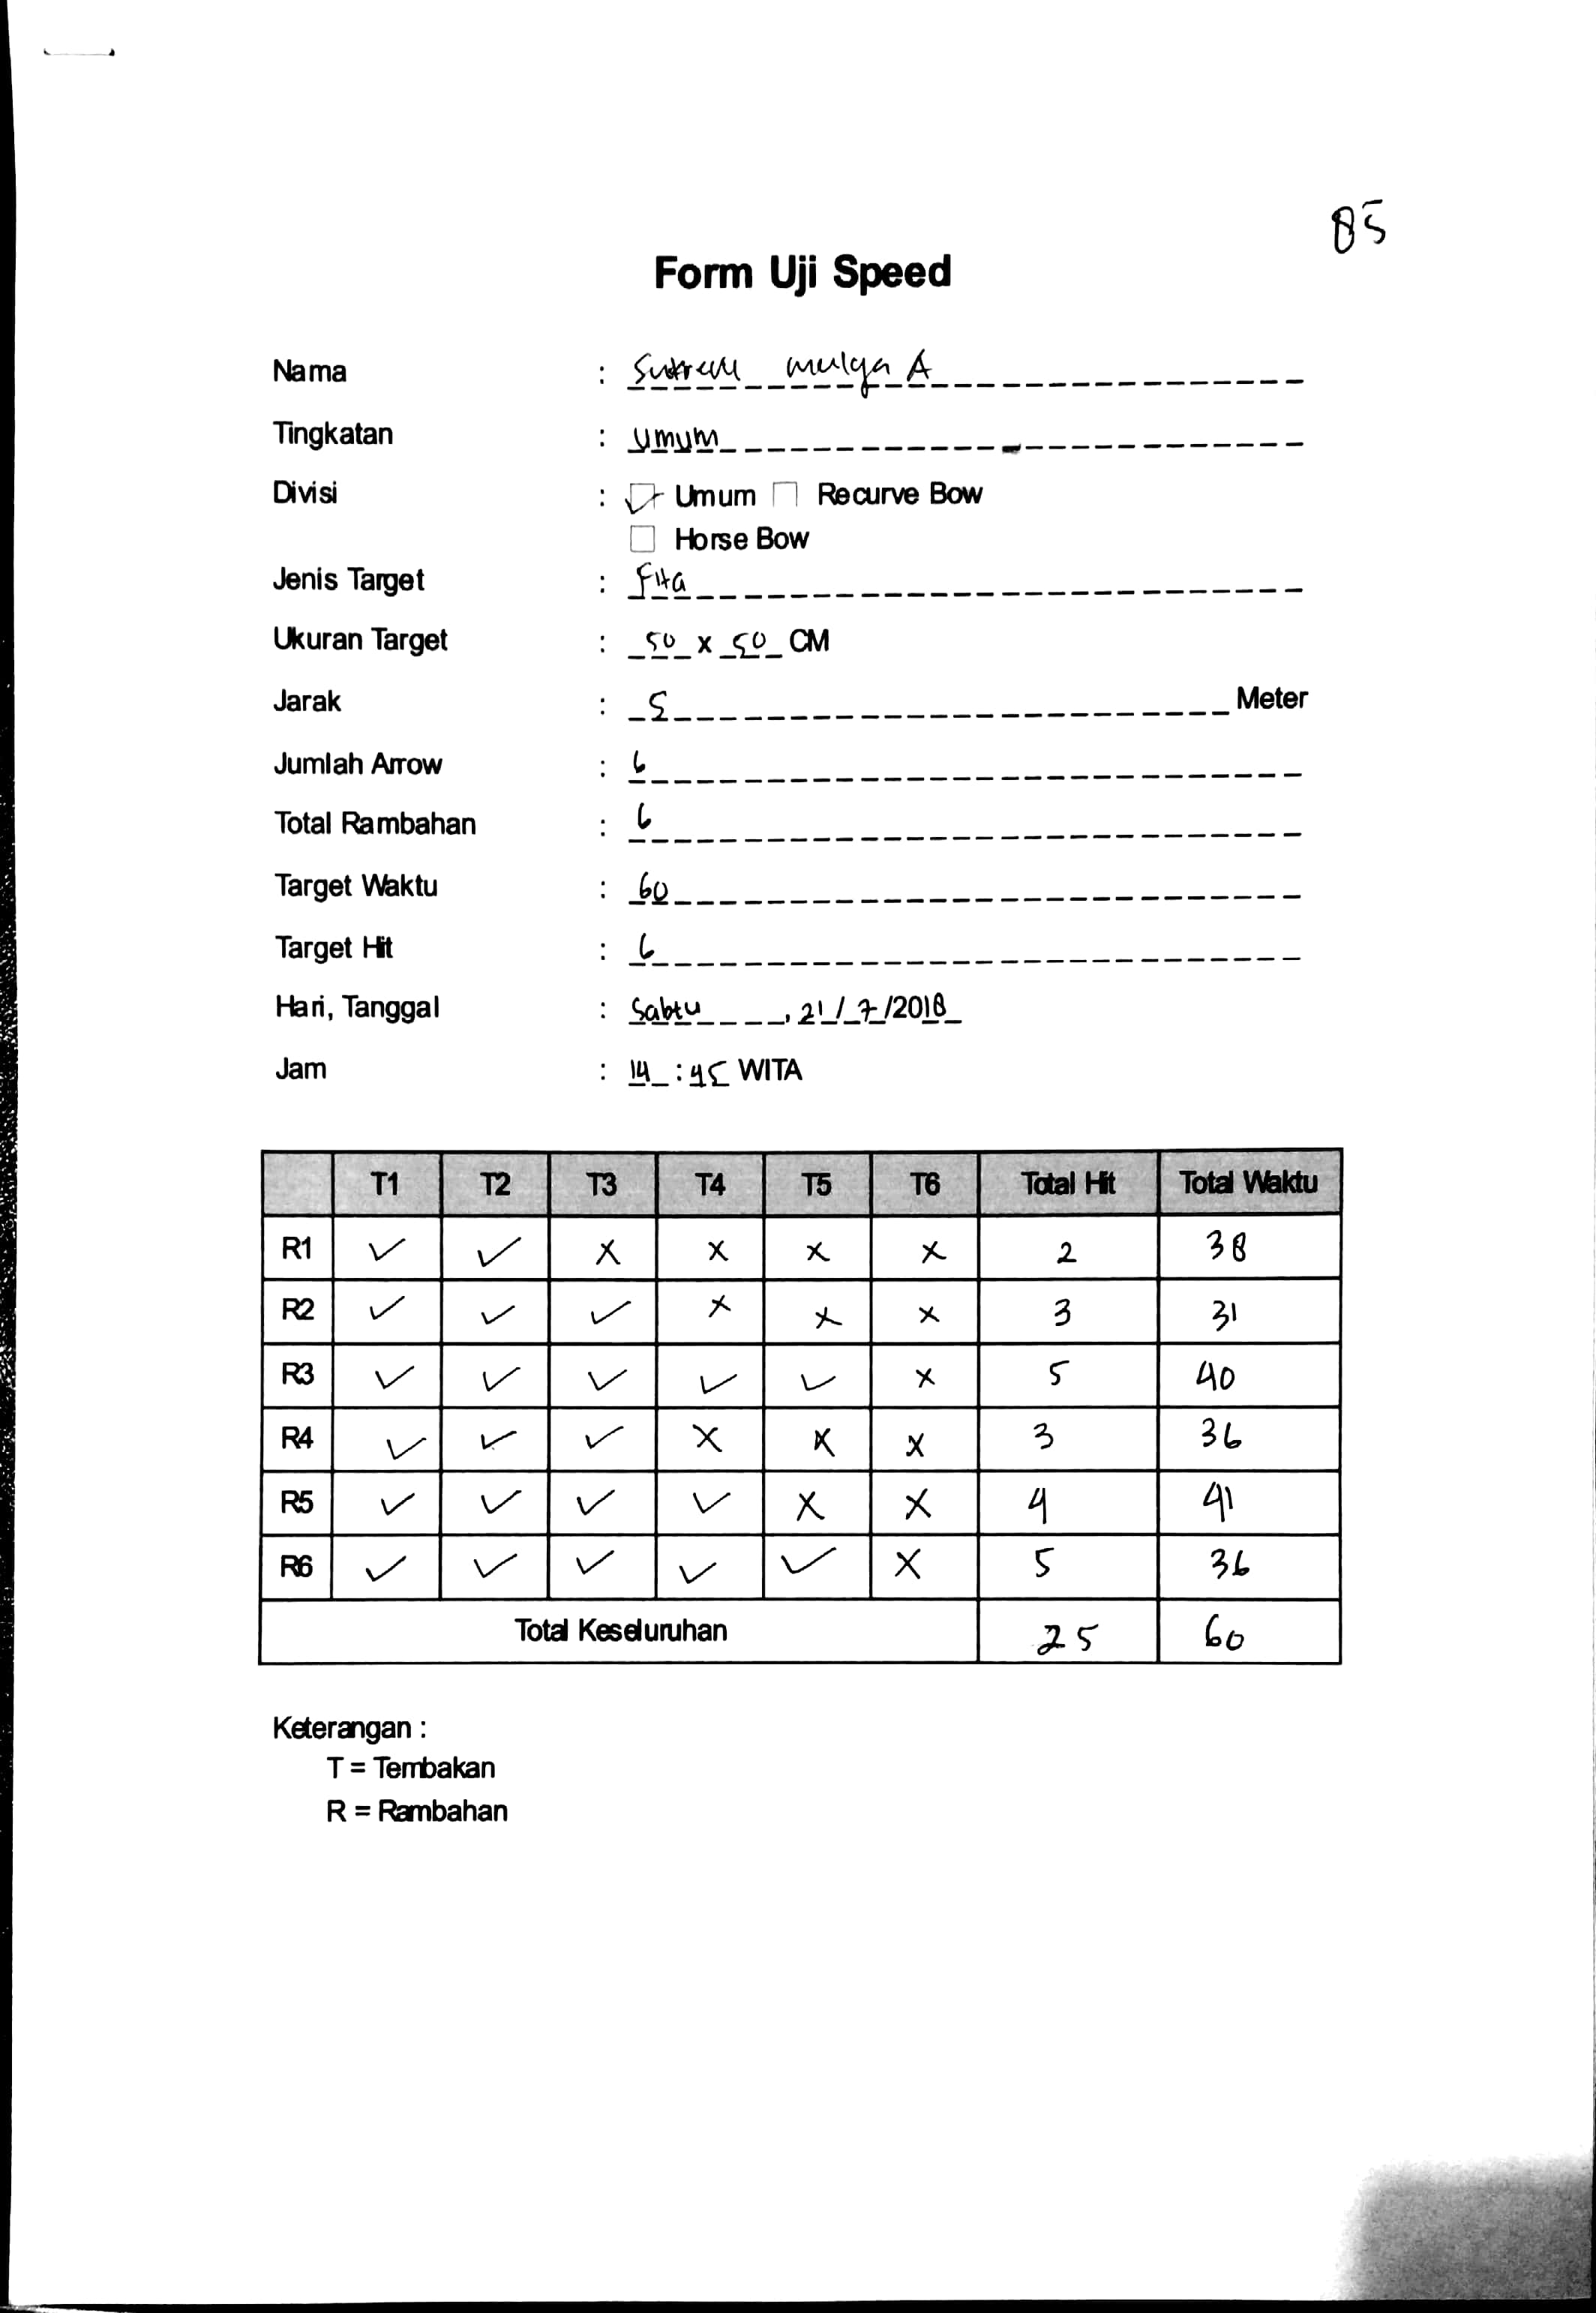 85
Form Uji Speed
Nama : mulya A
Tingkatan : Umum
Divisi : ✓ Umum □ Recurve Bow
□ Horse Bow
Jenis Target : Fita
Ukuran Target : 50 x 50 CM
Jarak : 5 Meter
Jumlah Arrow : 6
Total Rambahan : 6
Target Waktu : 60
Target Hit : 6
Hari, Tanggal : Sabtu , 21/7/2018
Jam : 14 : 45 WITA
T1 T2 T3 T4 T5 T6 Total Hit Total Waktu
R1 ✓ ✓ X X X X 2 38
R2 ✓ ✓ ✓ X X X 3 31
R3 ✓ ✓ ✓ ✓ ✓ X 5 40
R4 ✓ ✓ ✓ X X X 3 36
R5 ✓ ✓ ✓ ✓ X X 4 41
R6 ✓ ✓ ✓ ✓ ✓ X 5 36
Total Keseluruhan 25 60
Keterangan :
T = Tembakan
R = Rambahan